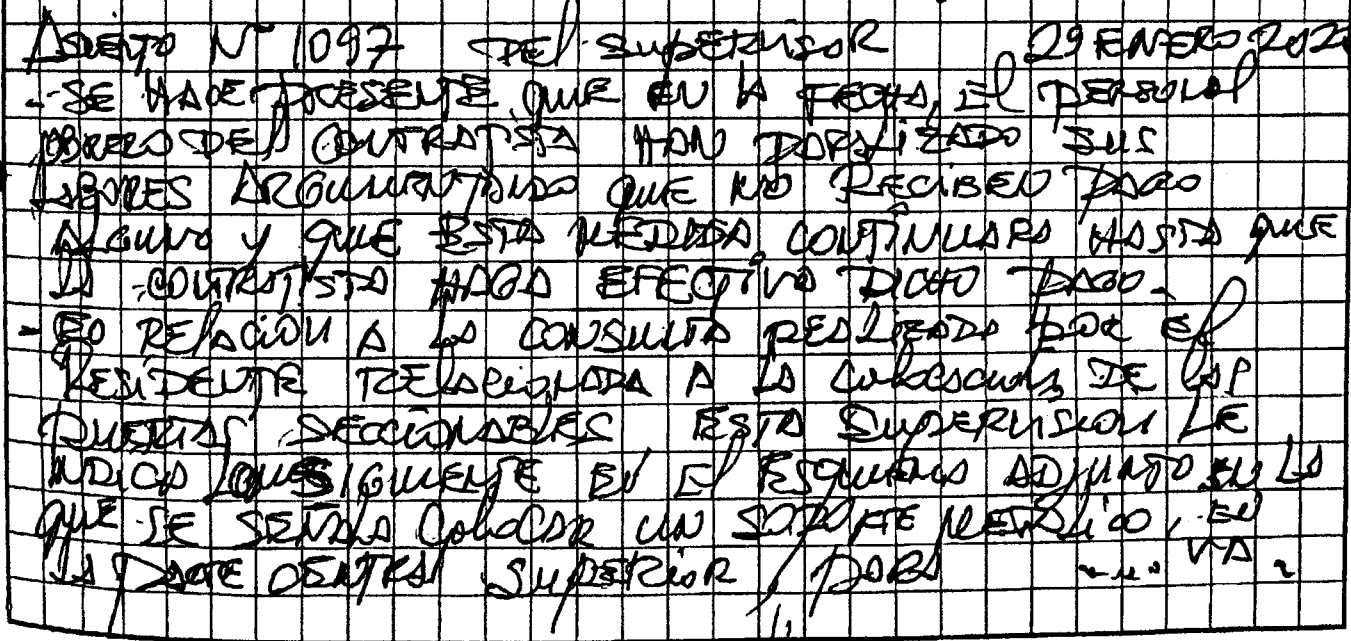 ASIENTO N° 1097 DEL SUPERVISOR 29 ENERO 202
- SE HACE PRESENTE QUE EN LA FECHA, EL PERSONAL
OBRERO DEL CONTRATISTA HAN PARALIZADO SUS
LABORES ARGUMENTANDO QUE NO RECIBEN PAGO
ALGUNO Y QUE ESTA MEDIDA CONTINUARA HASTA QUE
LA CONTRATISTA HAGA EFECTIVO DICHO PAGO.
- EN RELACIÓN A LA CONSULTA REALIZADA POR EL
RESIDENTE RELACIONADA A LA COLOCACION DE LAS
PUERTAS SECCIONABLES ESTA SUPERVISION LE
INDICA LO SIGUIENTE EN EL ESQUEMA ADJUNTO EN LA
QUE SE SEÑALA COLOCAR UN SOPORTE METALICO, EN
LA PARTE CENTRAL SUPERIOR, PARA ..... VA.